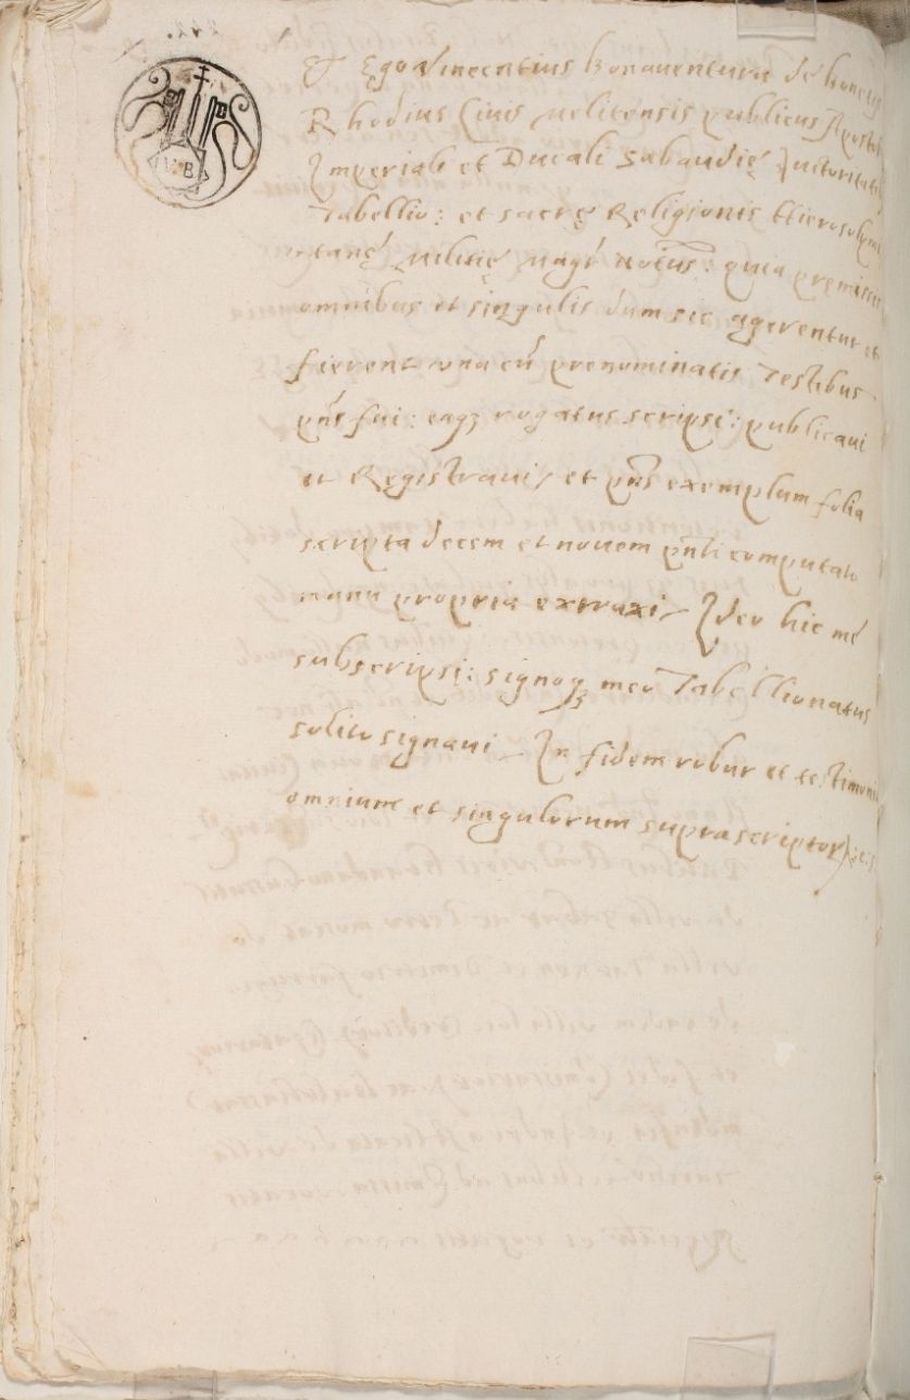 V B
Et Ego Vincentius Bonaventura de bonetis
Rhodius Civis melitensis publicus Apostol
Imperiali et Ducali Sabaudię Auctoritati
Tabellio: et sacrę Religionis Hierosolymi
tanę militię magri notius: quia pręmissis
omnibus et singulis dum sic agerentur et
fierent una cū prenominatis Testibus
pñs fui: eaqȝ rogatus scripsi: publicavi
et Registravi, et pñs exemplum folia
scripta decem et novem pñti computato
manu propria extraxi, Ideo hic mé
subscripsi: signoqȝ meo Tabellionatus
solito signavi, In fidem robur et testimoniu
omnium et singulorum suprascriptorꝝ